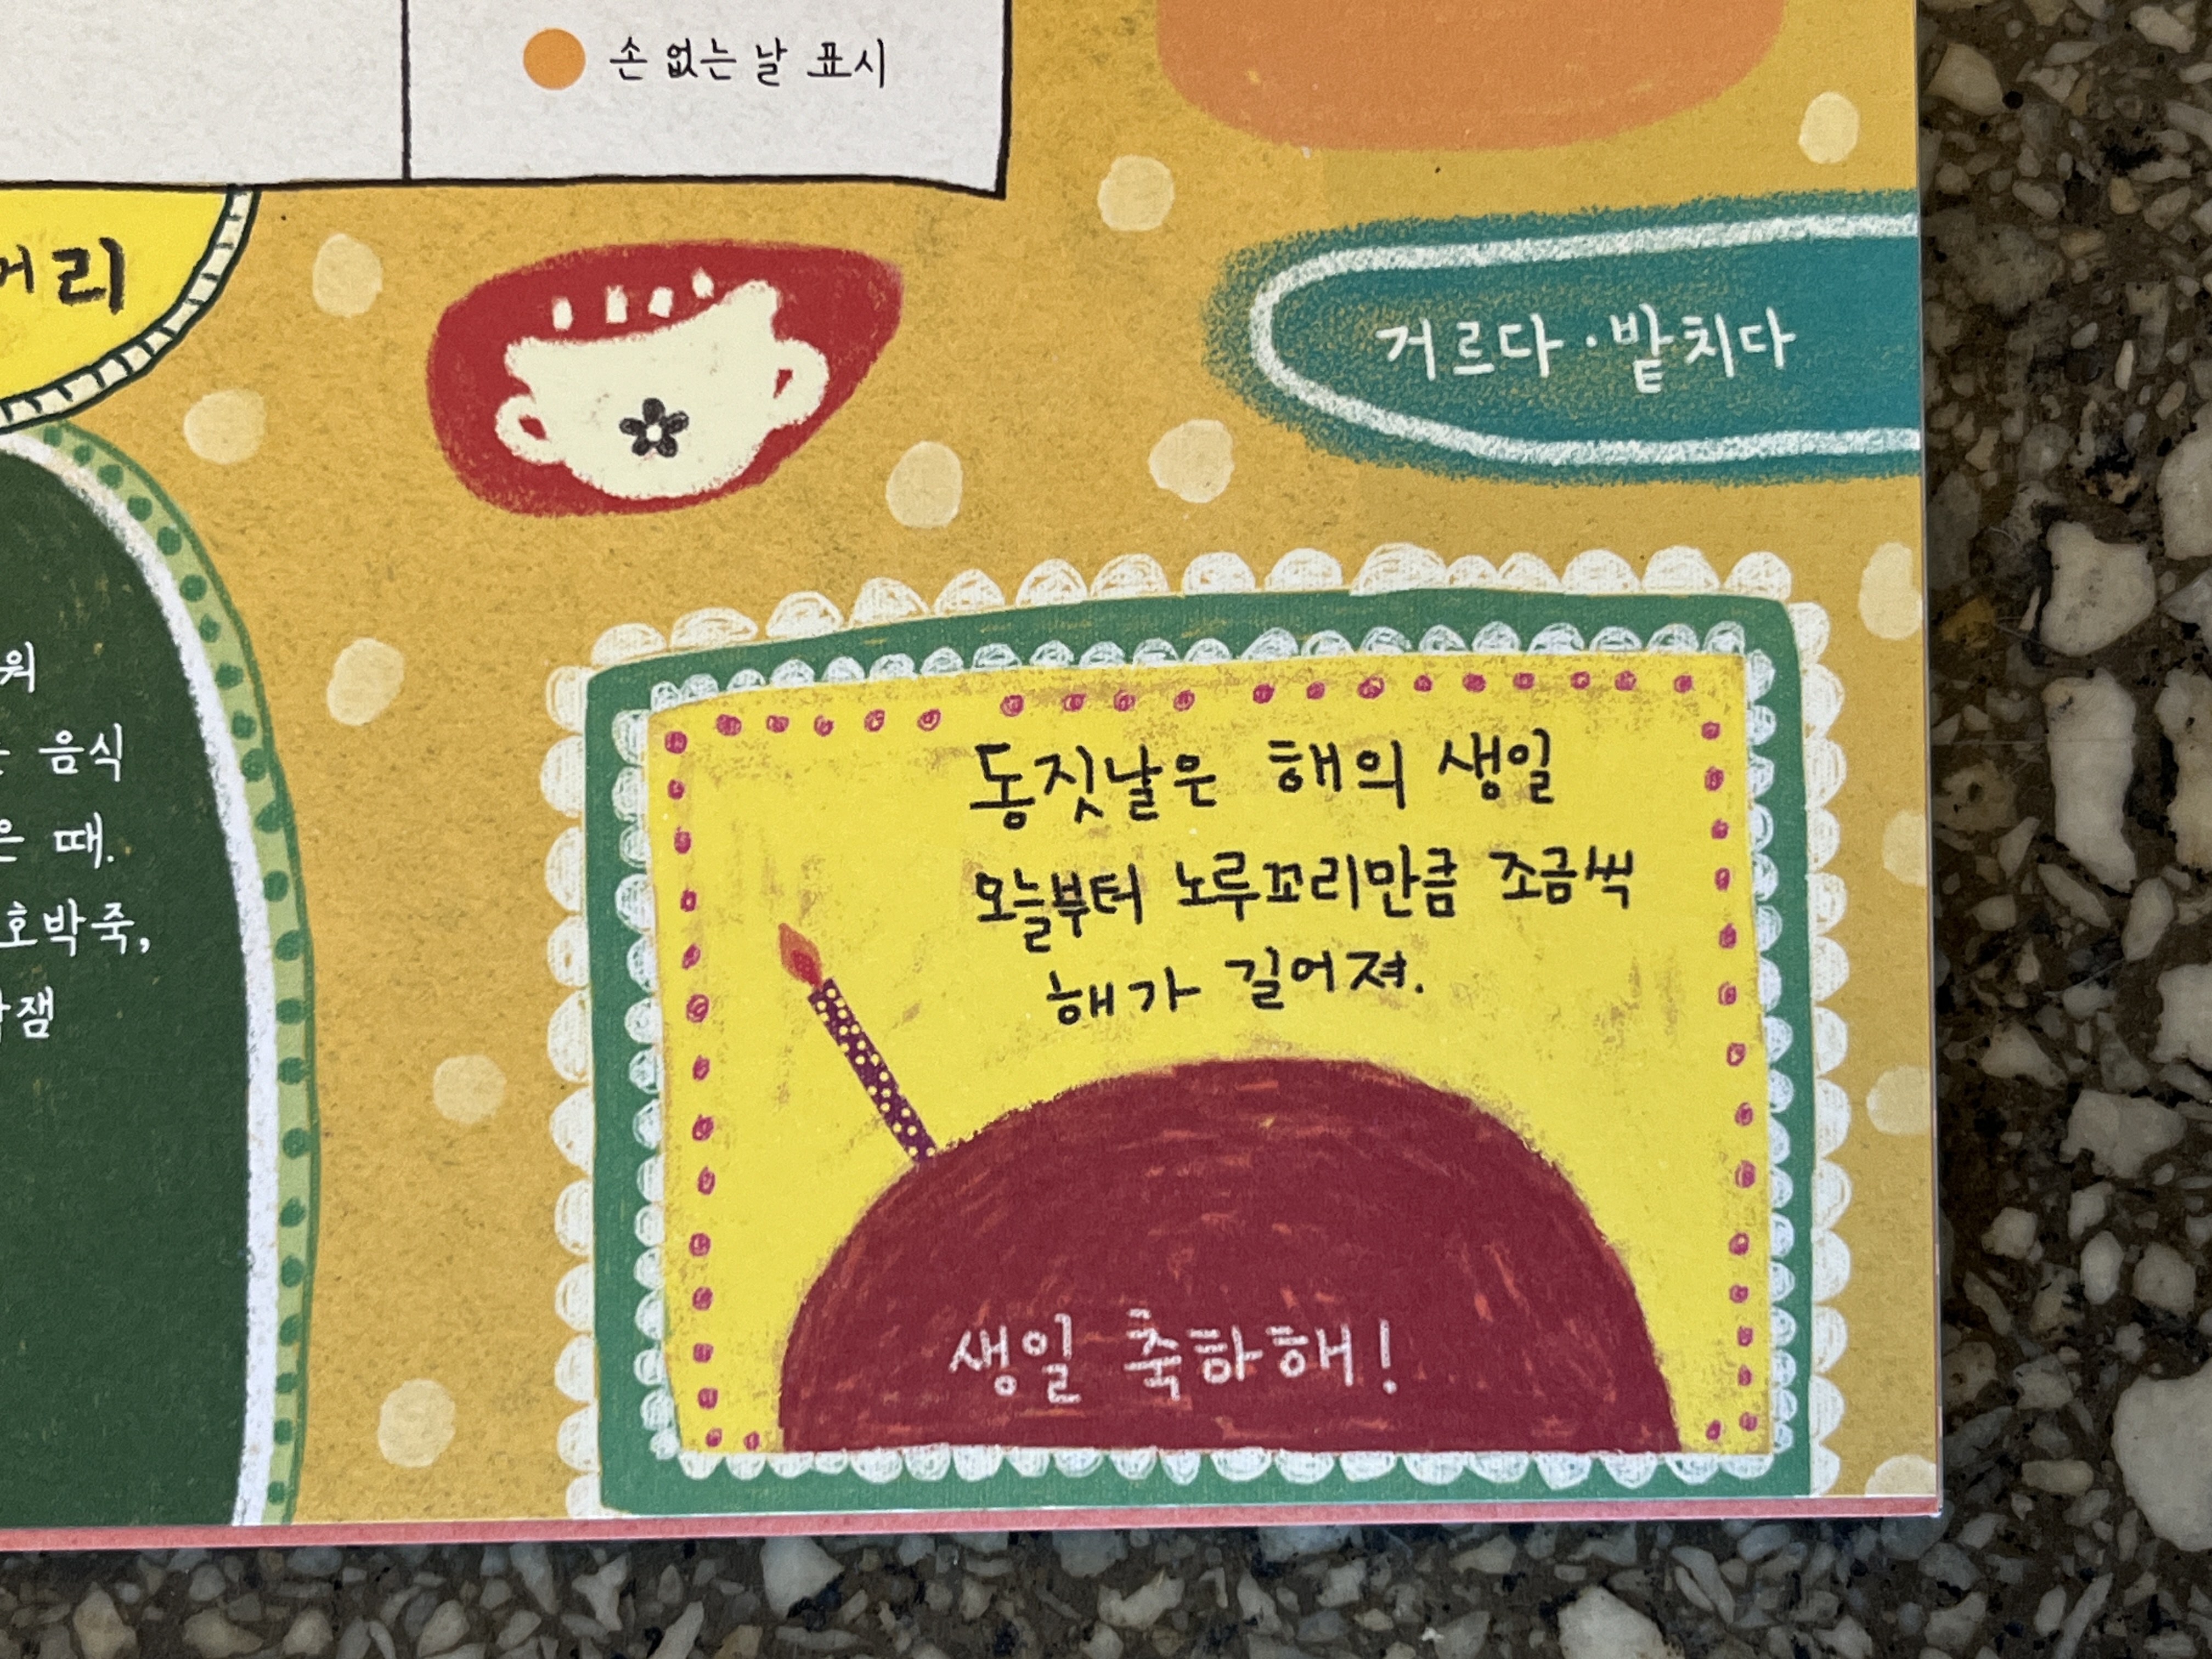 손 없는 날 표시
머리
거르다·밭치다
음식
때.
호박죽,
동짓날은 해의 생일
오늘부터 노루꼬리만큼 조금씩
해가 길어져.
생일 축하해!